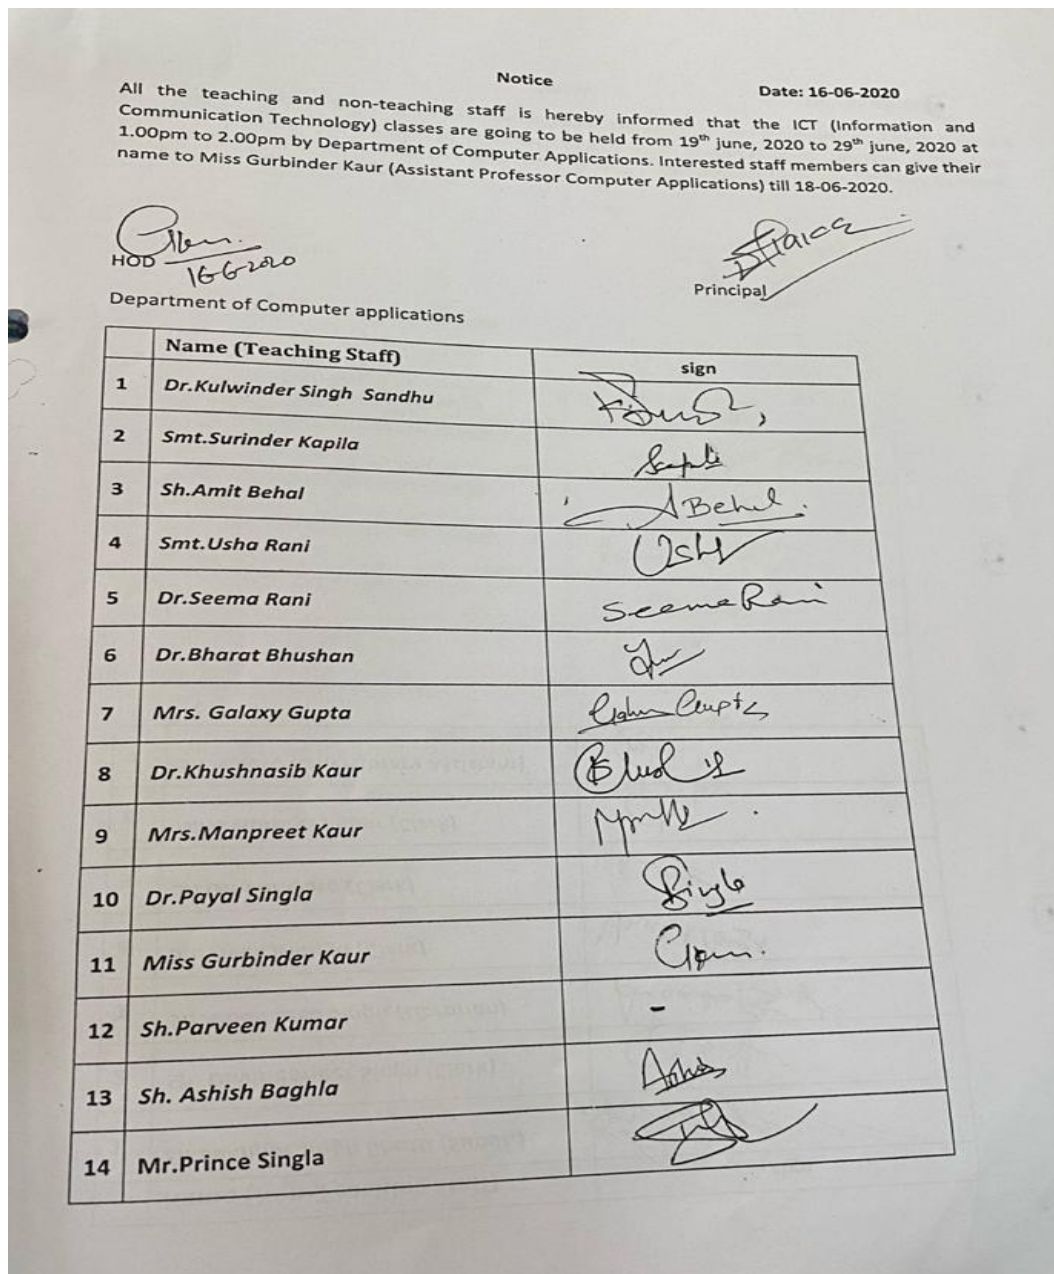 Notice
Date: 16-06-2020
All the teaching and non-teaching staff is hereby informed that the ICT (Information and
Communication Technology) classes are going to be held from 19th june, 2020 to 29th june, 2020 at
1.00pm to 2.00pm by Department of Computer Applications. Interested staff members can give their
name to Miss Gurbinder Kaur (Assistant Professor Computer Applications) till 18-06-2020.
HOD
16-6-2020
Principal
Department of Computer applications
Name (Teaching Staff) sign
1 Dr.Kulwinder Singh Sandhu
2 Smt.Surinder Kapila
3 Sh.Amit Behal ABehal.
4 Smt.Usha Rani Usha
5 Dr.Seema Rani Seema Rani
6 Dr.Bharat Bhushan
7 Mrs. Galaxy Gupta Gupta
8 Dr.Khushnasib Kaur
9 Mrs.Manpreet Kaur
10 Dr.Payal Singla Singla
11 Miss Gurbinder Kaur
12 Sh.Parveen Kumar -
13 Sh. Ashish Baghla
14 Mr.Prince Singla